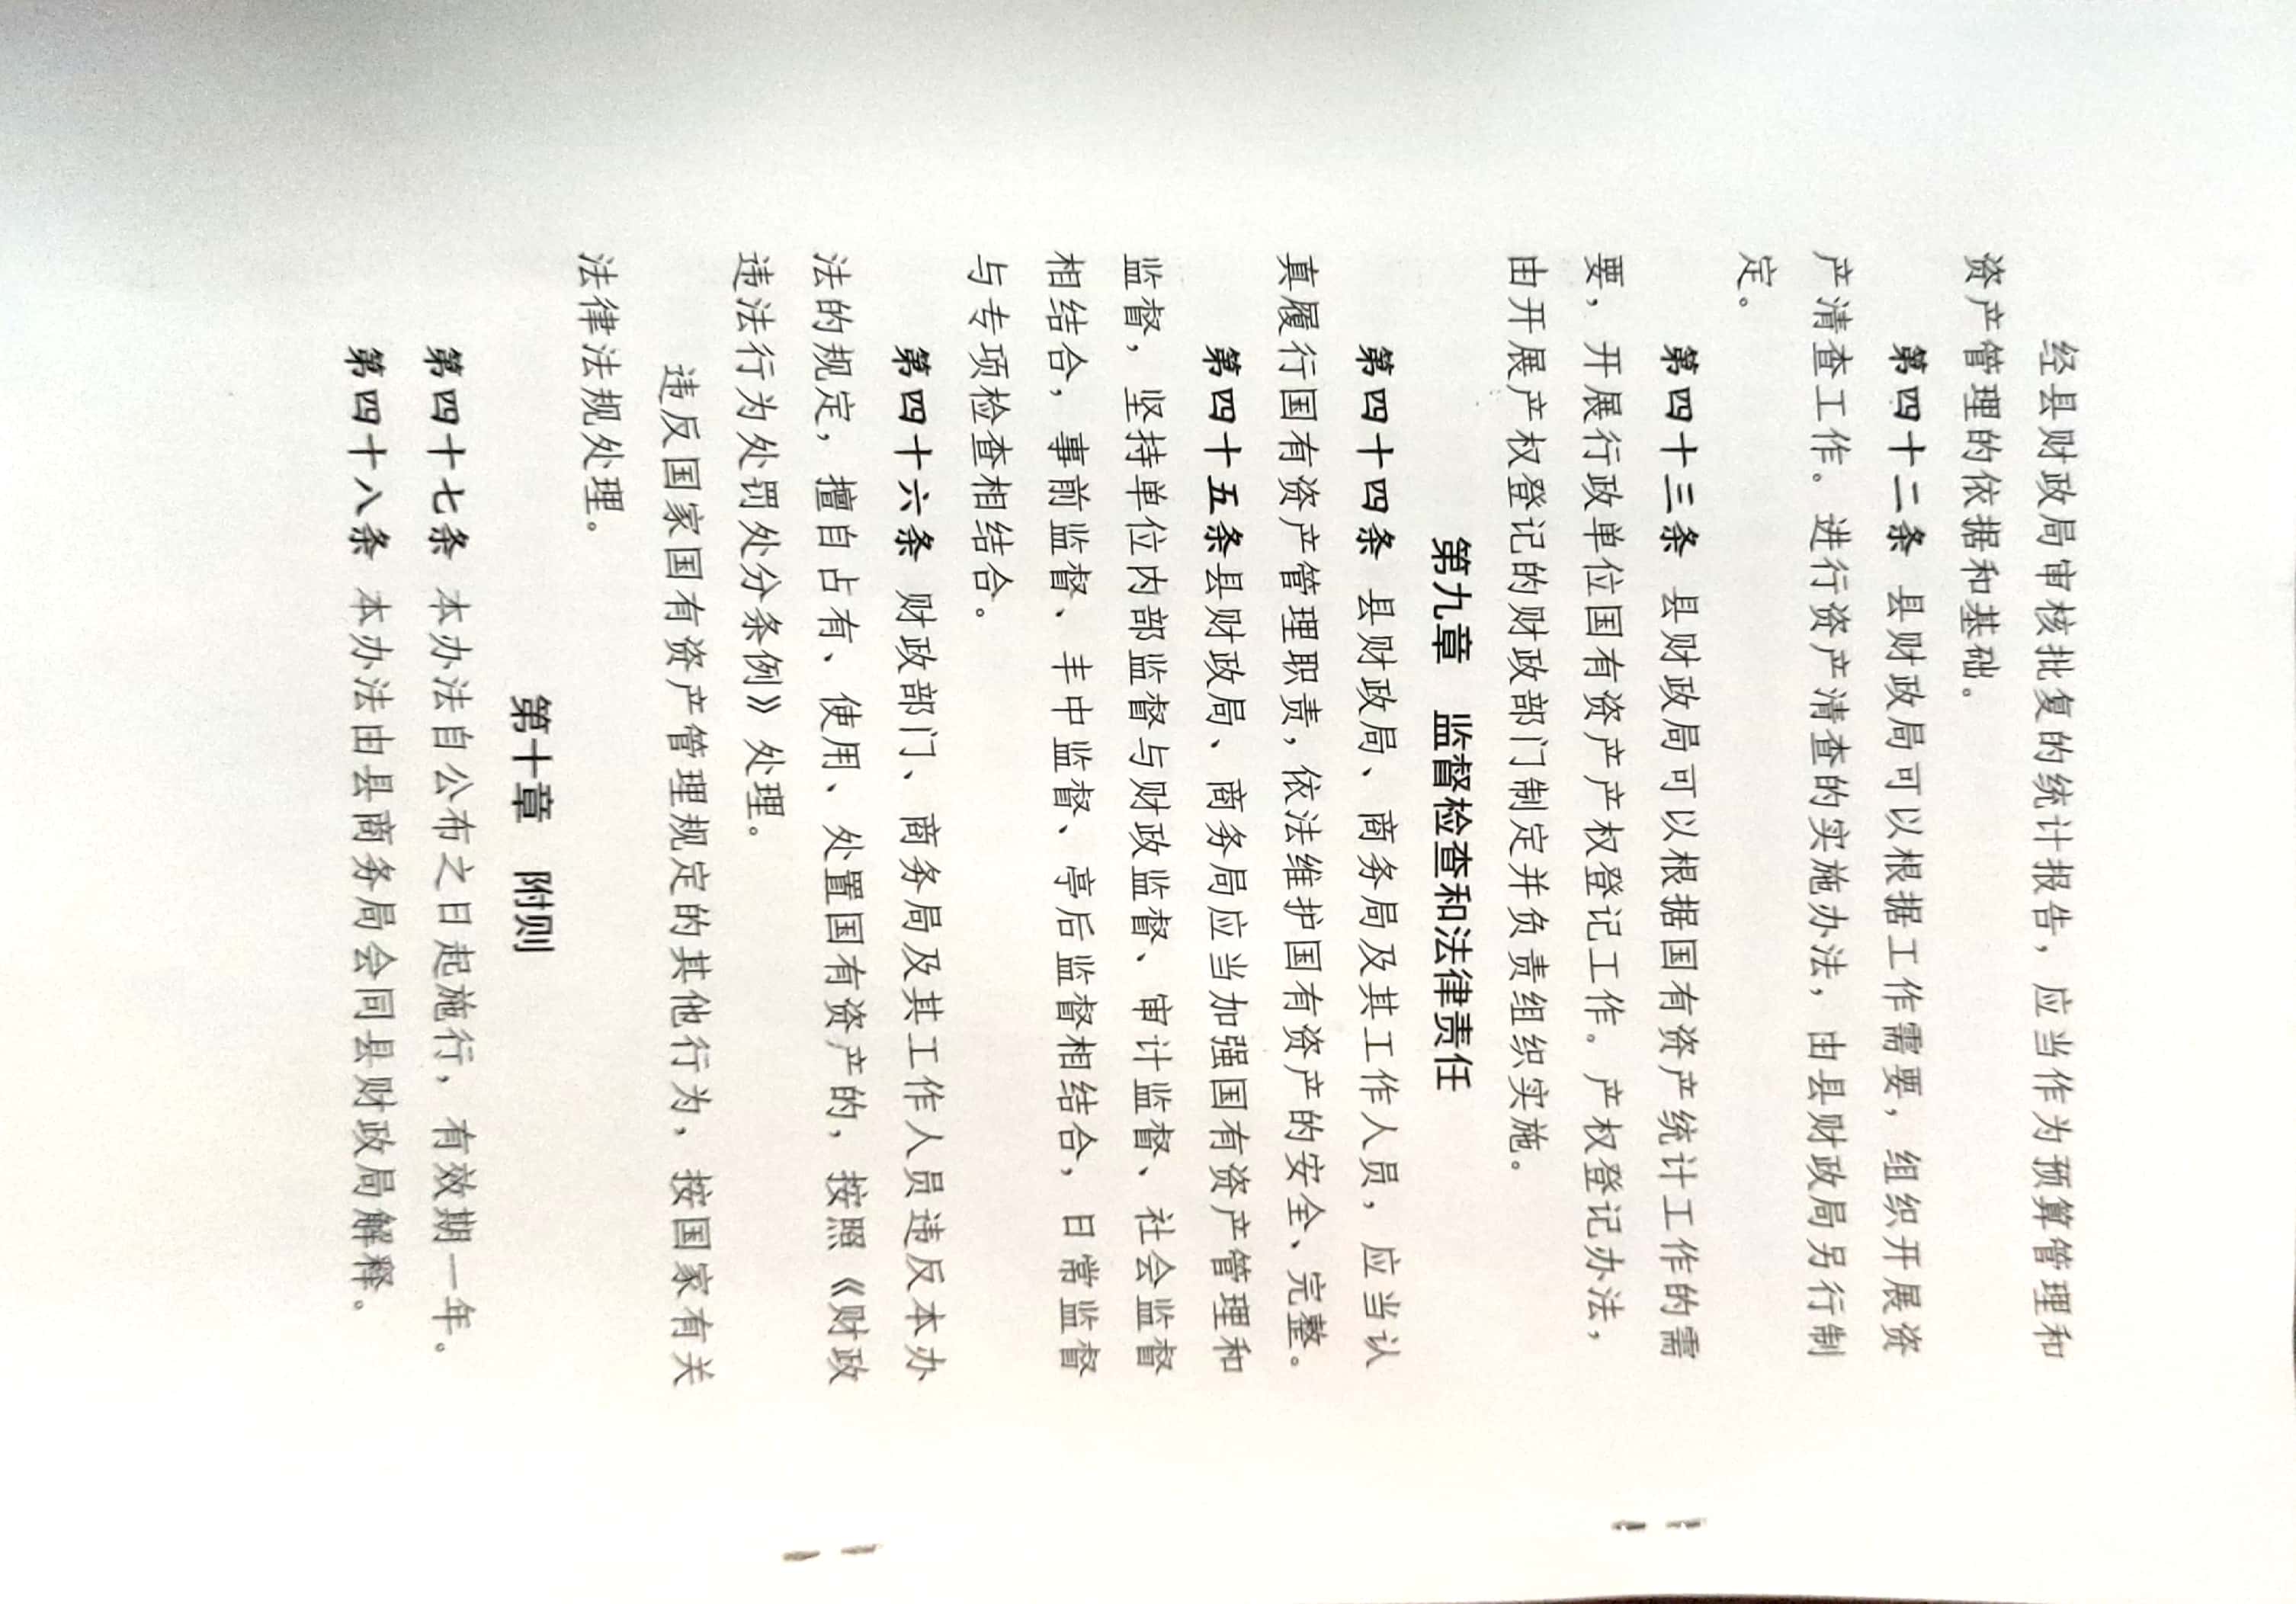 经县财政局审核批复的统计报告，应当作为预算管理和
资产管理的依据和基础。
第四十二条 县财政局可以根据工作需要，组织开展资
产清查工作。进行资产清查的实施办法，由县财政局另行制
定。
第四十三条 县财政局可以根据国有资产统计工作的需
要，开展行政单位国有资产产权登记工作。产权登记办法，
由开展产权登记的财政部门制定并负责组织实施。
第九章 监督检查和法律责任
第四十四条 县财政局、商务局及其工作人员，应当认
真履行国有资产管理职责，依法维护国有资产的安全、完整。
第四十五条县财政局、商务局应当加强国有资产管理和
监督，坚持单位内部监督与财政监督、审计监督、社会监督
相结合，事前监督、丰中监督、亭后监督相结合，日常监督
与专项检查相结合。
第四十六条 财政部门、商务局及其工作人员违反本办
法的规定，擅自占有、使用、处置国有资产的，按照《财政
违法行为处罚处分条例》处理。
违反国家国有资产管理规定的其他行为，按国家有关
法律法规处理。
第十章 附则
第四十七条 本办法自公布之日起施行，有效期一年。
第四十八条 本办法由县商务局会同县财政局解释。